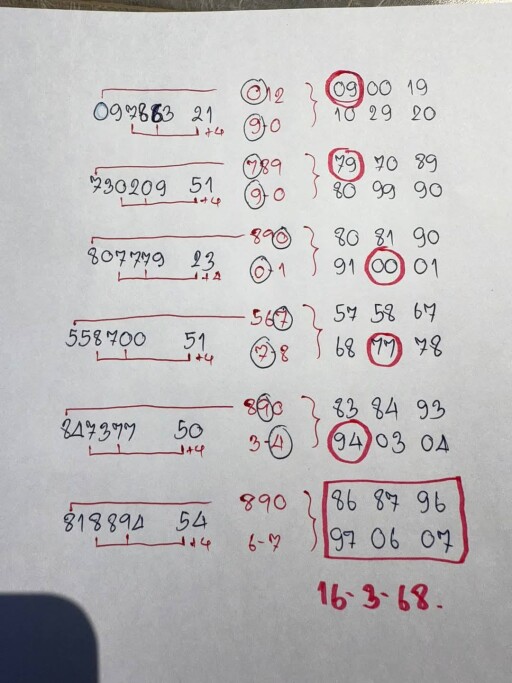 012 09 00 19
097883 21 +4 9-0 10 29 20
789 79 70 89
730209 51 +4 9-0 80 99 90
890 80 81 90
807779 23 +4 0-1 91 00 01
567 57 58 67
558700 51 +4 7-8 68 77 78
890 83 84 93
847377 50 +4 3-4 94 03 04
890 86 87 96
818894 54 +4 6-7 97 06 07
16-3-68.